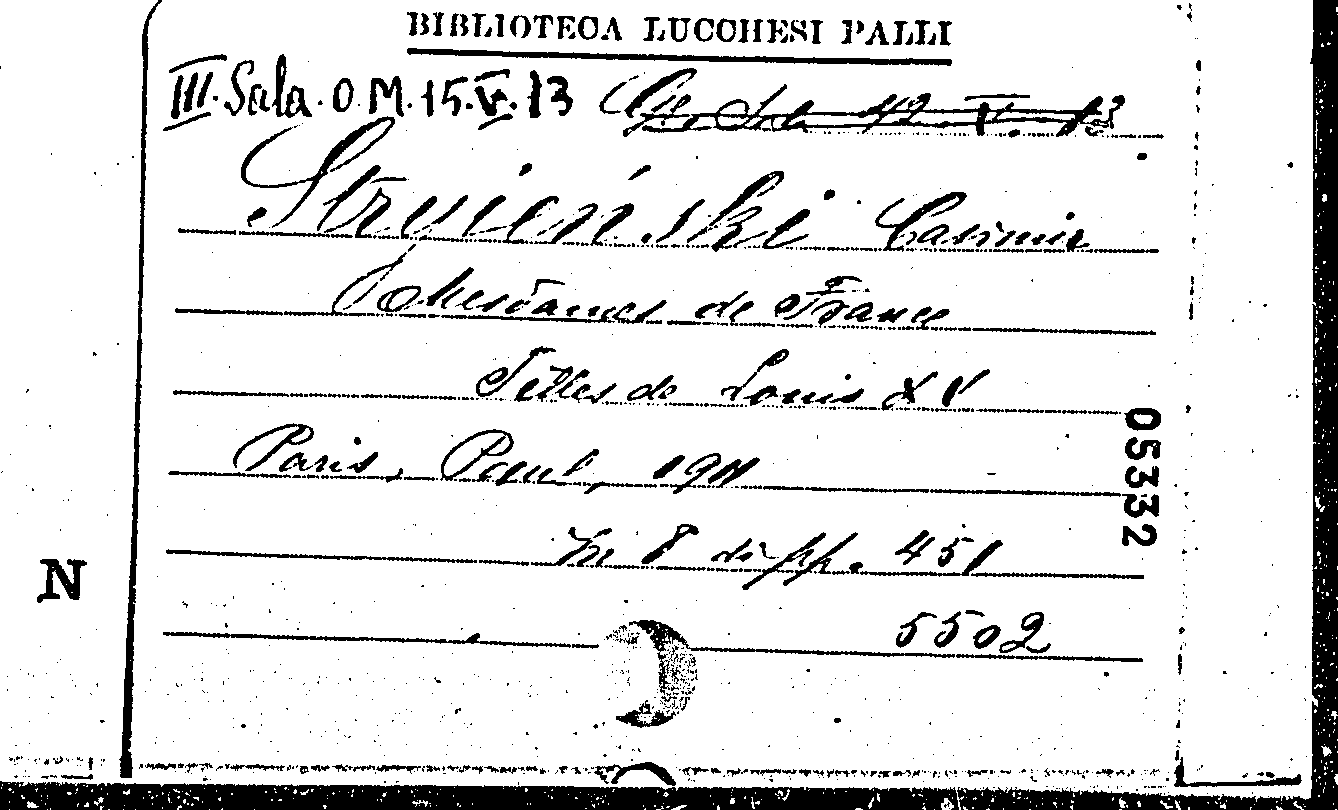 BIBLIOTECA LUCCHESI PALLI
III. Sala. O M. 15. V. 13
Stryieński Casimir
Mesdames de France
Filles de Louis XV
Paris, Paul, 1911
In 8 di pp. 451
5502
05332
N